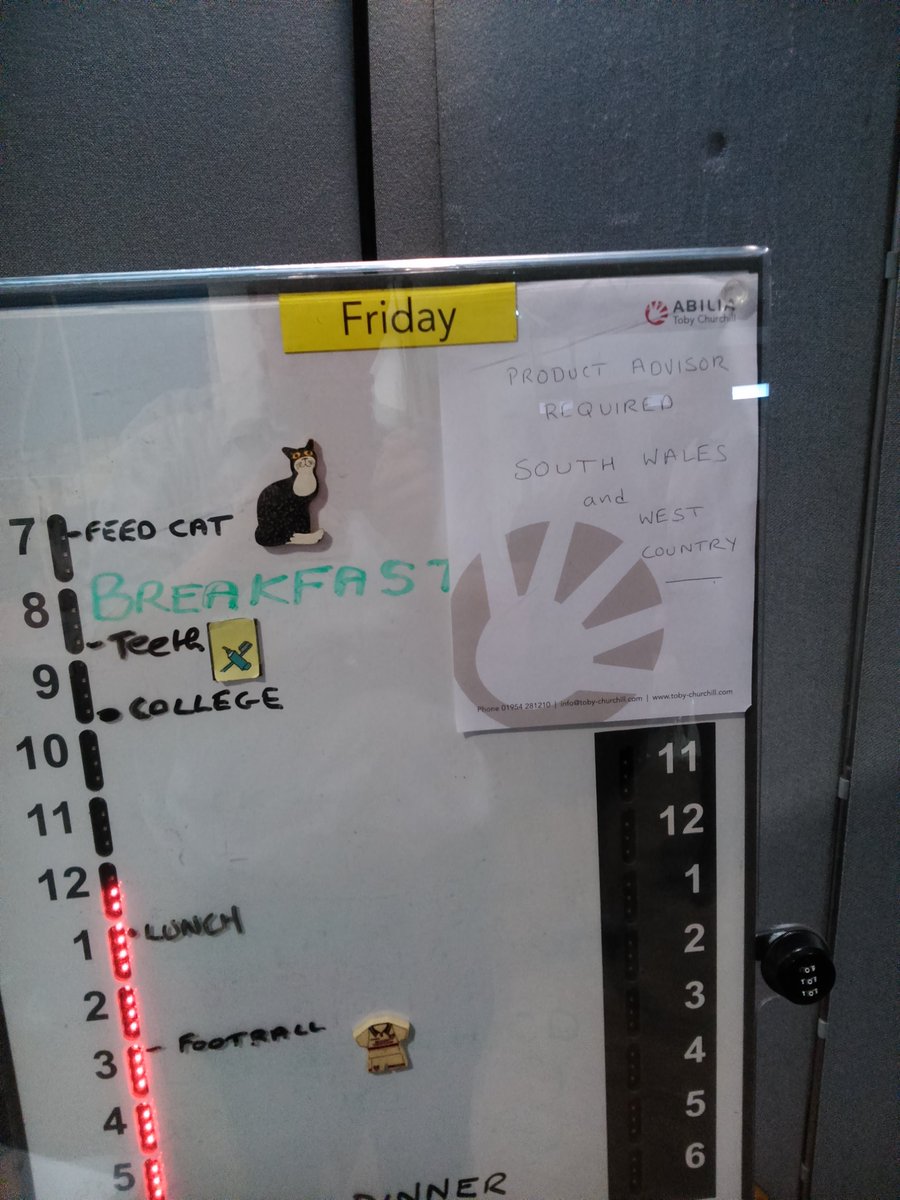 Friday
ABILIA
Toby Churchill
PRODUCT ADVISOR
REQUIRED
SOUTH WALES
and
WEST
COUNTRY
Phone 01954 281210 | info@toby-churchill.com | www.toby-churchill.com
7 FEED CAT
BREAKFAST
8
Teeth
9
COLLEGE
10
11
12
1 LUNCH
2
FOOTBALL
3
4
5
DINNER
11
12
1
2
3
4
5
6